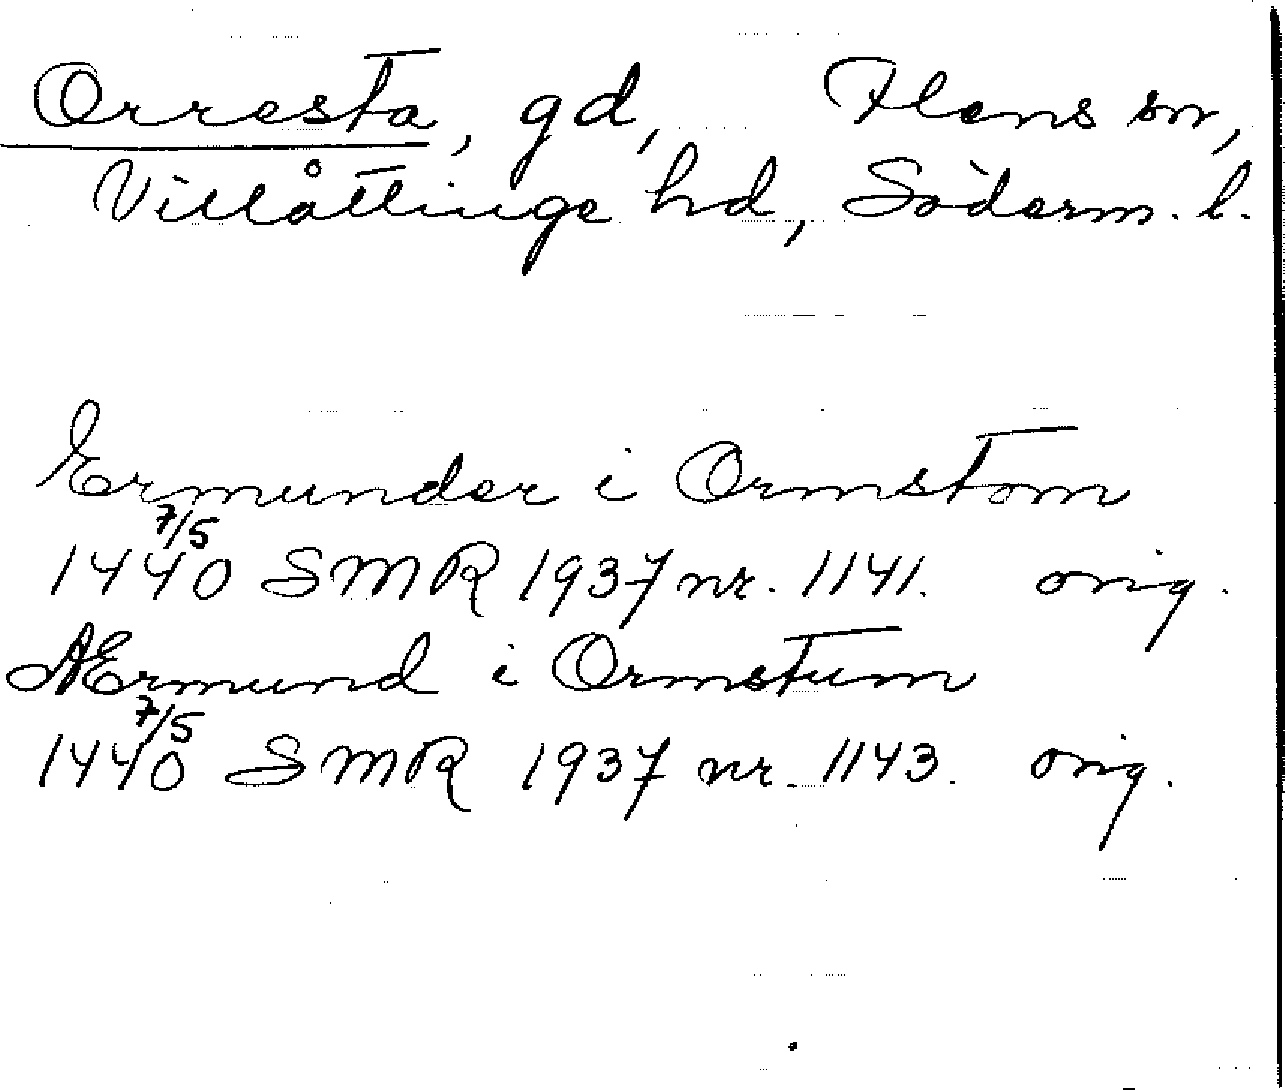 Orresta, gd, Flens sn,
Villåttinge hd, Söderm. l.
Ermunder i Ormstom
1440 7/5 SMR 1937 nr. 1141. orig.
AErmund i Ormstum
1440 7/5 SMR 1937 nr. 1143. orig.